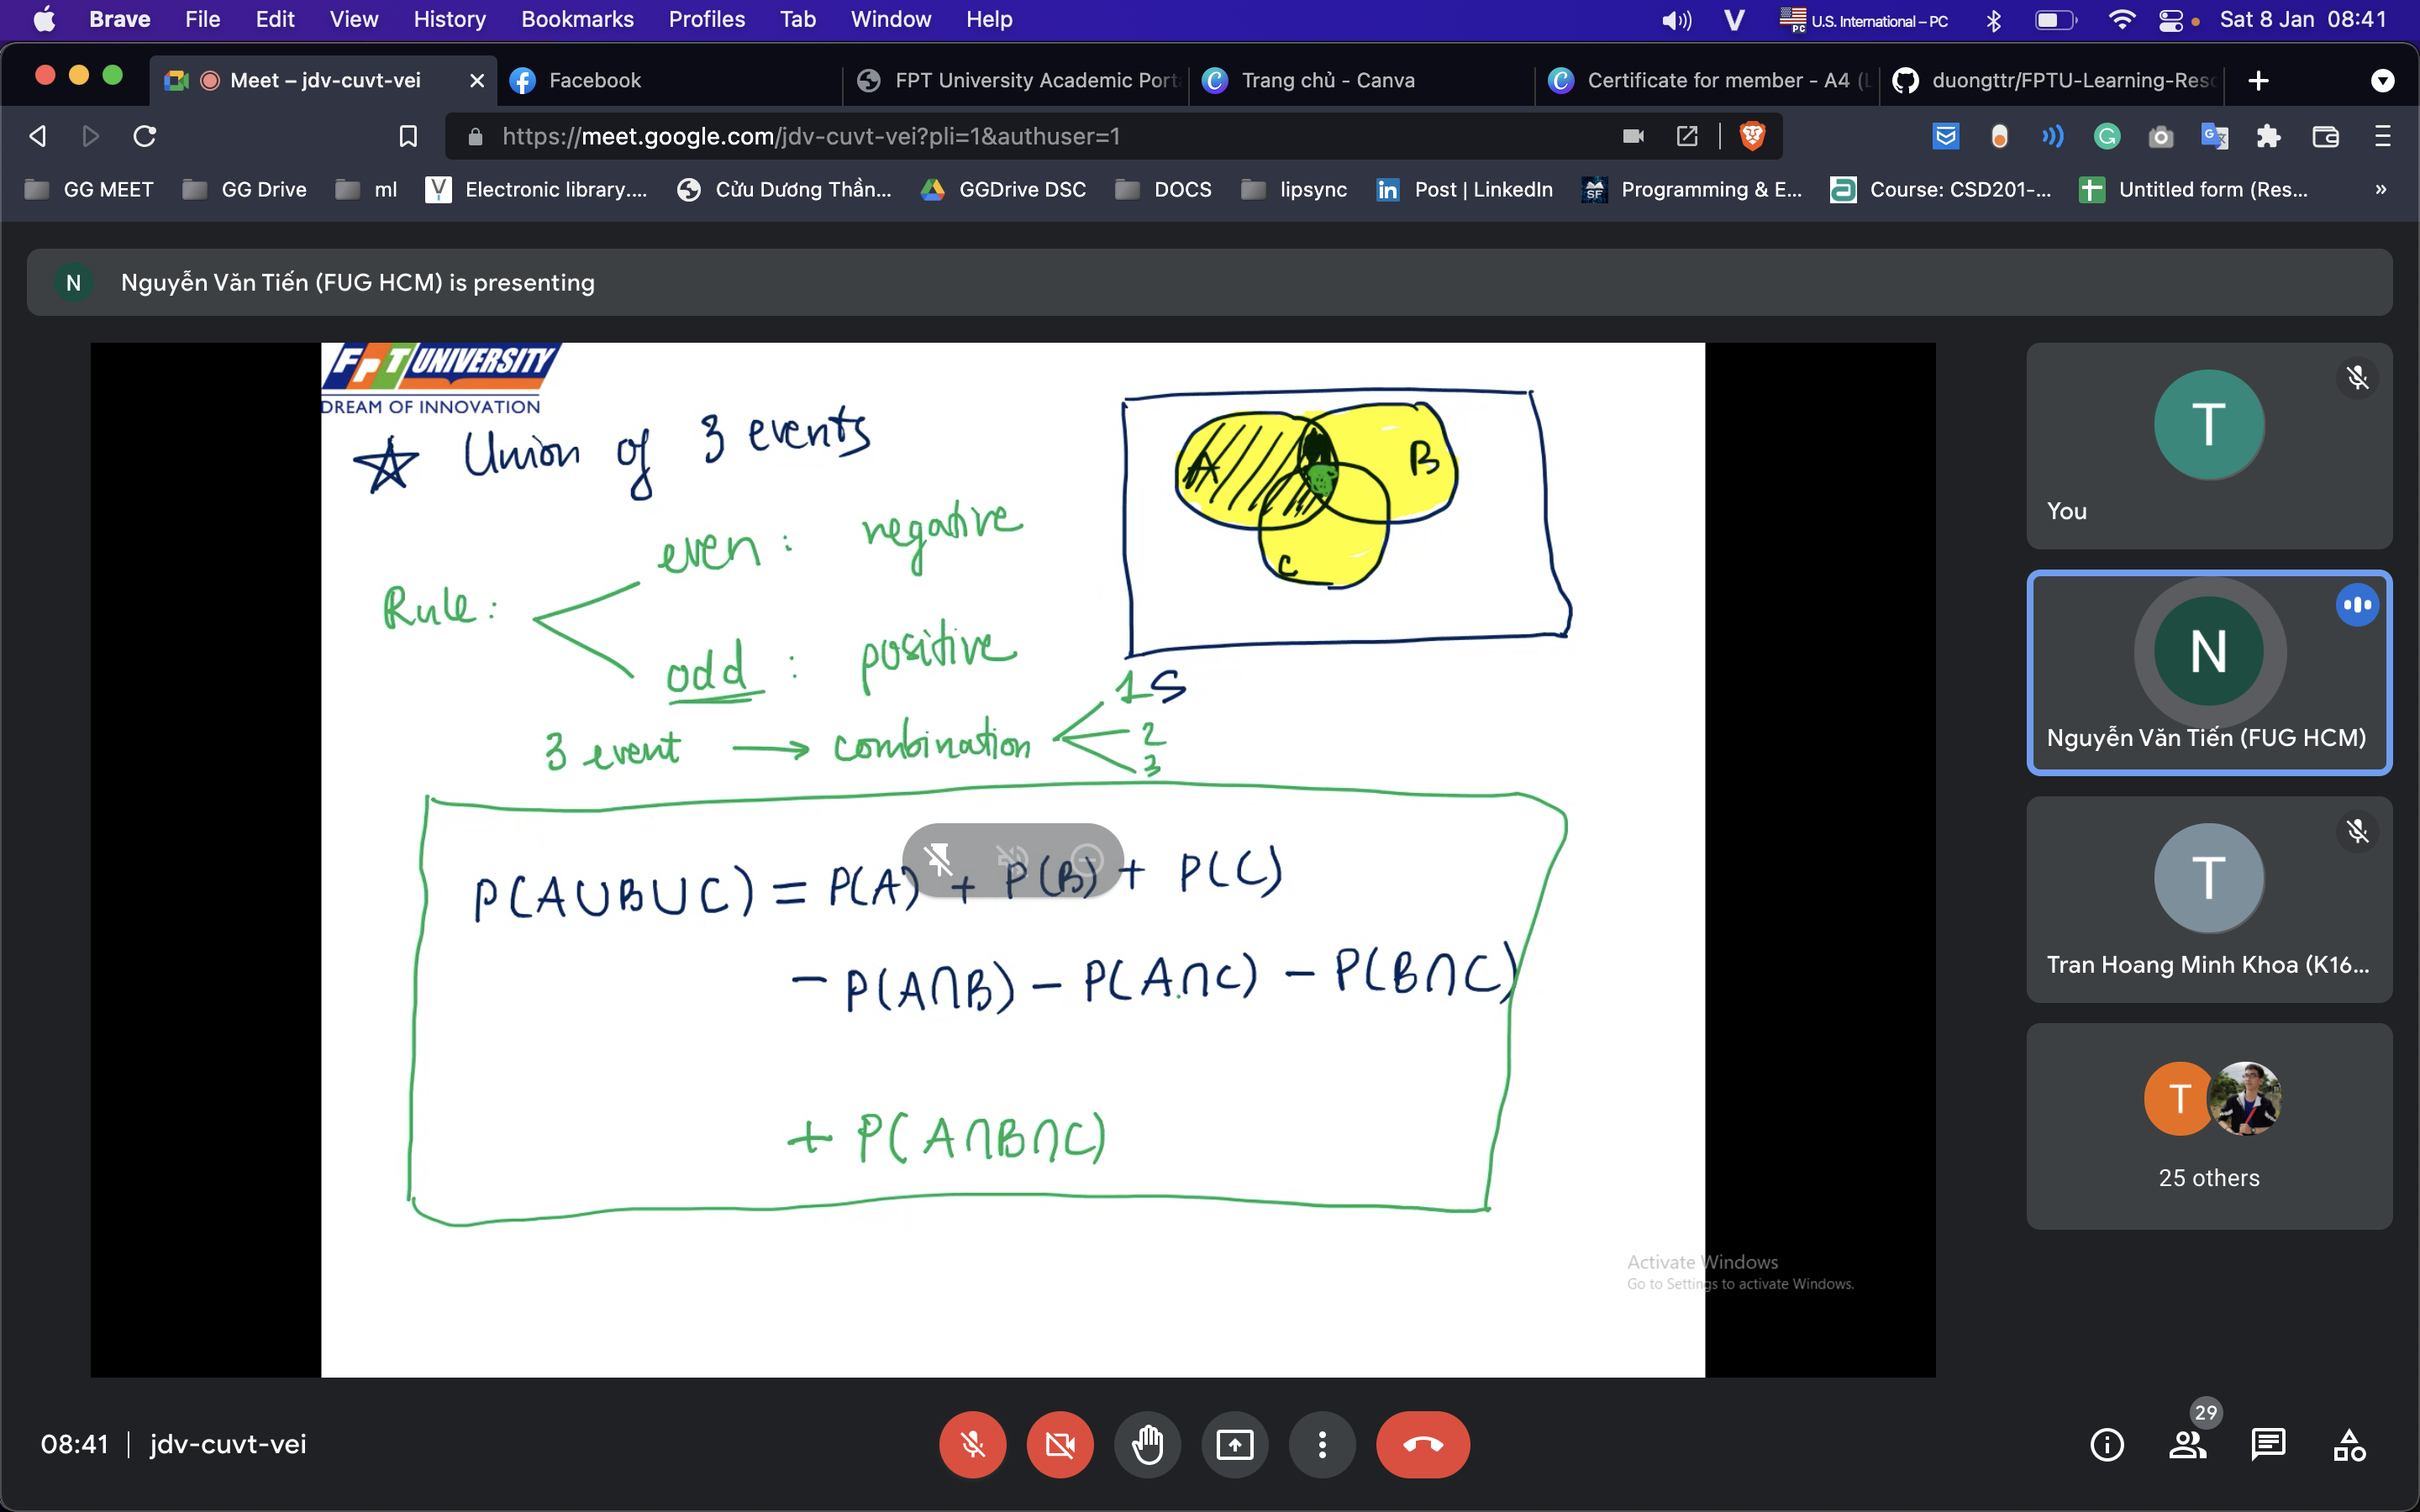 Brave File Edit View History Bookmarks Profiles Tab Window Help V PC U.S. International – PC Sat 8 Jan 08:41
Meet – jdv-cuvt-vei Facebook FPT University Academic Port Trang chủ - Canva Certificate for member - A4 (L duongttr/FPTU-Learning-Reso
https://meet.google.com/jdv-cuvt-vei?pli=1&authuser=1
GG MEET GG Drive ml Electronic library.... Cửu Dương Thần... GGDrive DSC DOCS lipsync Post | LinkedIn Programming & E... Course: CSD201-... Untitled form (Res... »
N Nguyễn Văn Tiến (FUG HCM) is presenting
FPT UNIVERSITY
DREAM OF INNOVATION
Union of 3 events
A B
C
S
Rule:
even : negative
odd : positive
3 event → combination
1
2
3
P(A∪B∪C) = P(A) + P(B) + P(C)
− P(A∩B) − P(A∩C) − P(B∩C)
+ P(A∩B∩C)
Activate Windows
Go to Settings to activate Windows.
T
You
N
Nguyễn Văn Tiến (FUG HCM)
T
Tran Hoang Minh Khoa (K16...
T
25 others
08:41 | jdv-cuvt-vei
29